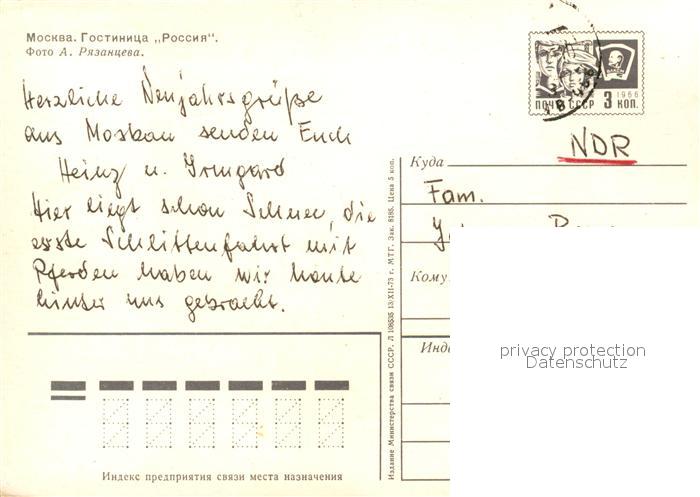 Москва. Гостиница „Россия“.
Фото А. Рязанцева.
Herzliche Neujahrsgrüße
aus Moskau senden Euch
Heinz u. Irmgard
Hier liegt schon Schnee, die
erste Schlittenfahrt mit
Pferden haben wir heute
hinter uns gebracht.
ПОЧТА СССР 3 КОП.
1966
NDR
Куда
Fam.
Кому
Инд
privacy protection
Datenschutz
Издание Министерства связи СССР. Л 108535 13/XII-73 г. МТГ. Зак. 8185. Цена 5 коп.
Индекс предприятия связи места назначения